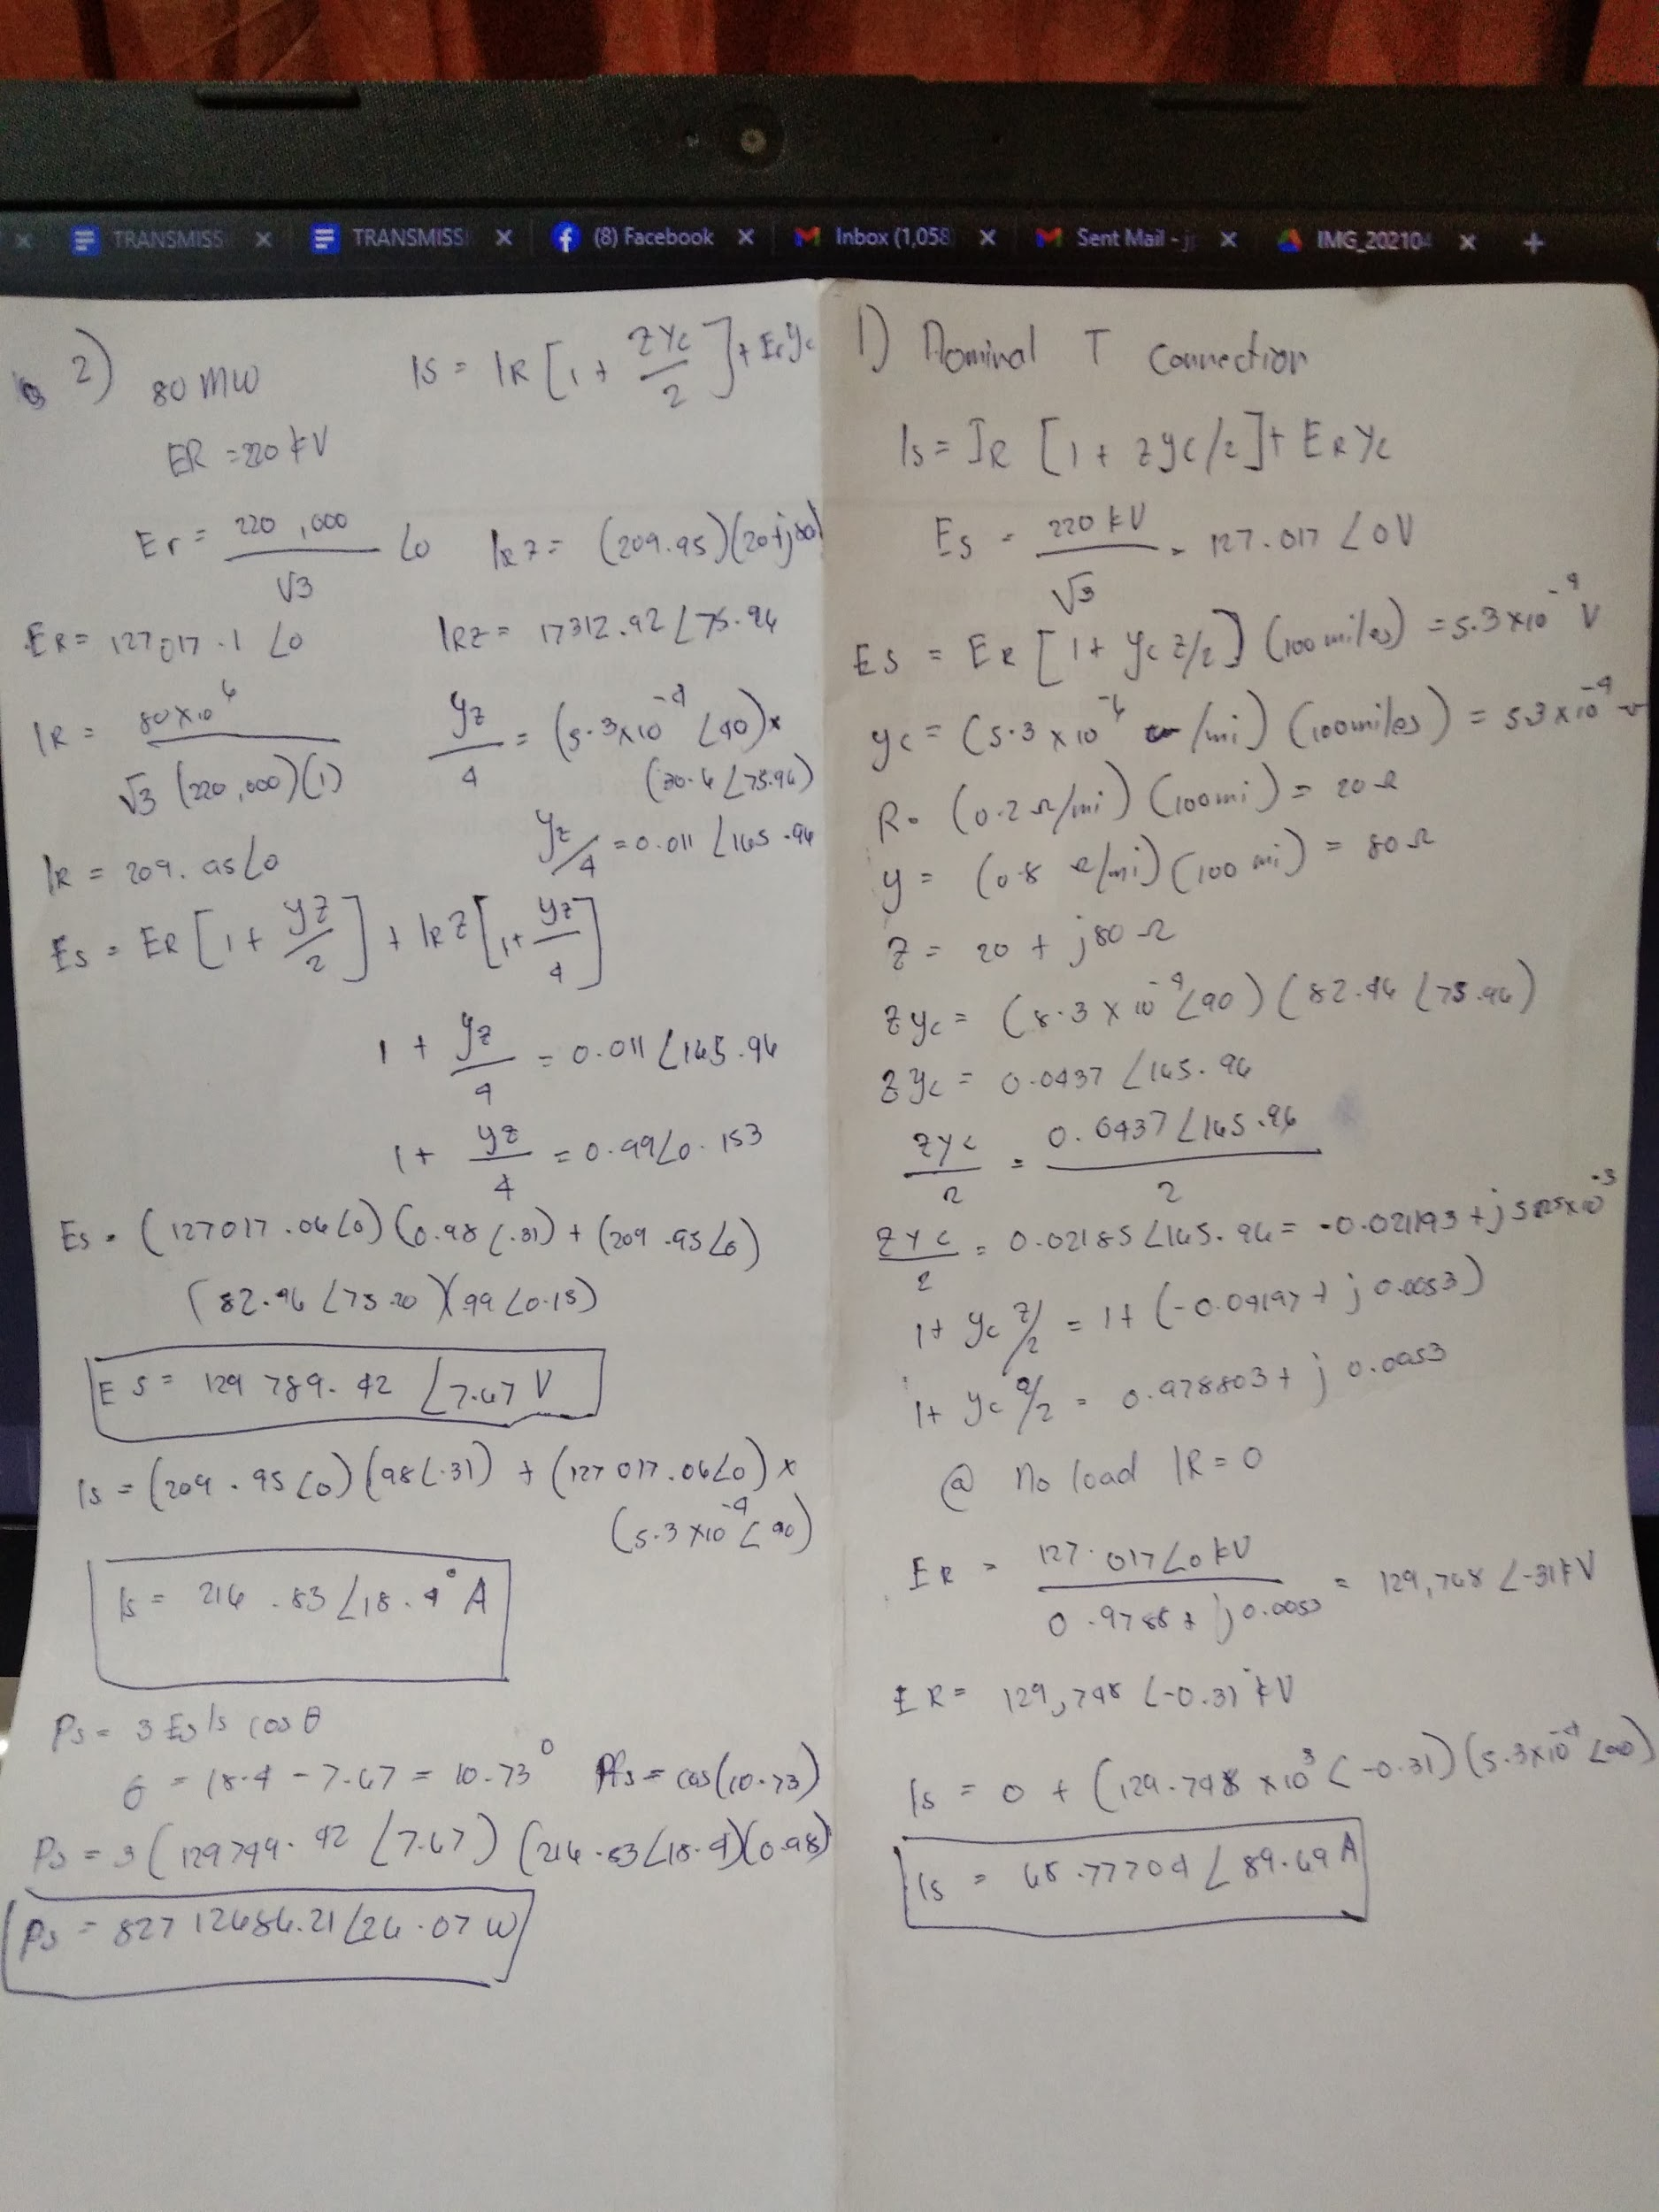 TRANSMISS
TRANSMISS
(8) Facebook
Inbox (1,058
Sent Mail - j
IMG_20210
2)
80 MW
Is = IR [1 + ZYc/2] + Er Yc
ER = 220 kV
Er = 220,000/√3 ∠0
IRZ = (209.95)(20+j80)
ER = 127017.1 ∠0
IRZ = 17312.92 ∠75.96
IR = 80×10^6/√3 (220,000)(1)
YZ/4 = (5.3×10^-4 ∠90)×
(20.6 ∠75.96)
YZ/4 = 0.011 ∠165.96
IR = 209.95∠0
Es = ER [1 + YZ/2] + IRZ [1 + YZ/4]
1 + YZ/4 = 0.011 ∠165.96
1 + YZ/4 = 0.99∠0.153
Es = (127017.06∠0)(0.98∠.31) + (209.95∠0)
(82.46 ∠75.20)(.99∠0.15)
ES = 129 789.42 ∠7.67 V
Is = (209.95∠0)(98∠.31) + (127017.06∠0) ×
(5.3×10^-4 ∠90)
Is = 216.83 ∠18.4° A
Ps = 3 Es Is cos θ
θ = 18.4 - 7.67 = 10.73°
Pfs = cos(10.73)
Ps = 3 (129799.42 ∠7.67) (216.83∠18.4)(0.98)
Ps = 82712686.21 ∠26.07 W
1) Nominal T Connection
Is = IR [1 + ZYc/2] + ER Yc
Es = 220 kV/√3 = 127.017 ∠0V
ES = ER [1 + Yc Z/2] (100 miles) = 5.3×10^-4 V
Yc = (5.3 × 10^-6 /mi) (100 miles) = 5.3 × 10^-4
R = (0.2 Ω/mi) (100mi) = 20 Ω
y = (0.8 Ω/mi) (100 mi) = 80 Ω
Z = 20 + j80 Ω
ZYc = (5.3 × 10^-4 ∠90) (82.46 ∠75.96)
ZYc = 0.0437 ∠165.96
ZYc/2 = 0.0437 ∠165.96/2
ZYc/2 = 0.02185 ∠165.96 =
1 + Yc Z/2 = 1 + (-0.04197 + j 0.0053)
1 + Yc Z/2 = 0.978803 + j 0.0053
@ No load IR = 0
ER = 127.017∠0 kV/0.9788 + j0.0053 = 129,768 ∠-31 kV
ER = 129,768 ∠-0.31 kV
Is = 0 + (129.768 ×10^3 ∠-0.31)(5.3×10^-4 ∠90)
Is = 68.77704 ∠89.69 A